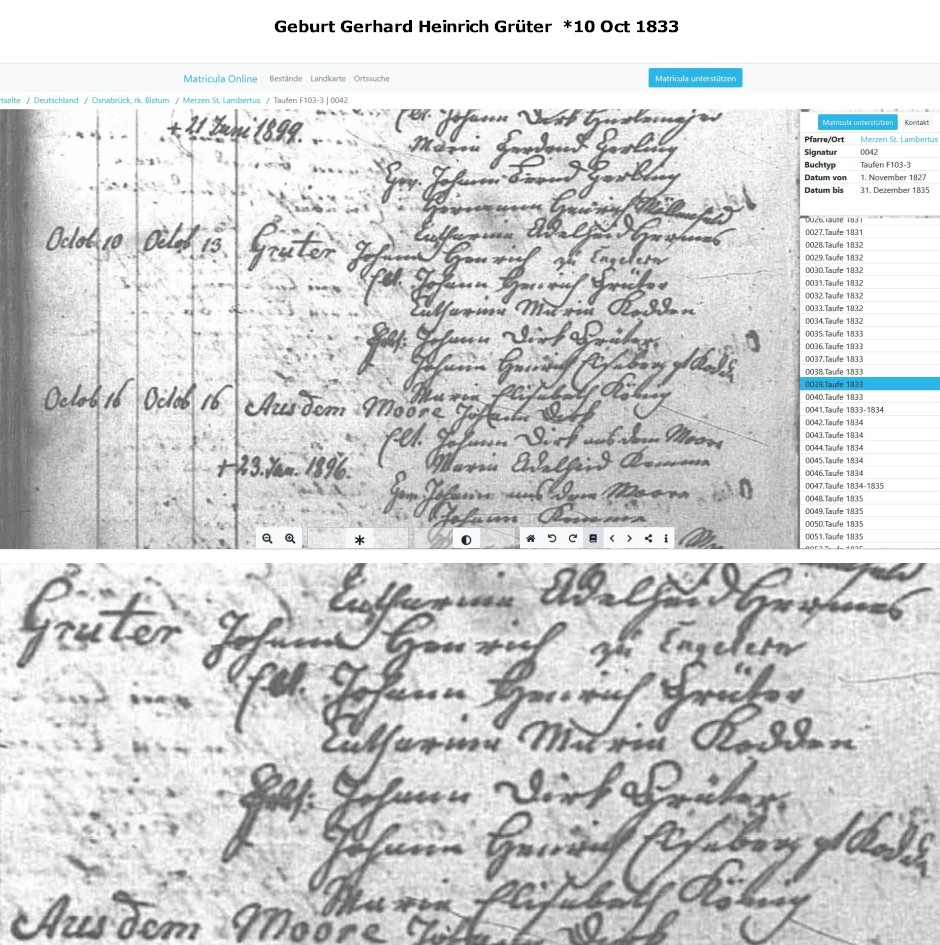 Geburt Gerhard Heinrich Grüter *10 Oct 1833
Matricula Online Bestände Landkarte Ortssuche Matricula unterstützen
rtseite / Deutschland / Osnabrück, rk. Bistum / Merzen St. Lambertus / Taufen F103-3 | 0042
Matricula unterstützen Kontakt
Pfarre/Ort Merzen St. Lambertus
Signatur 0042
Buchtyp Taufen F103-3
Datum von 1. November 1827
Datum bis 31. Dezember 1835
0026.Taufe 1831
0027.Taufe 1831
0028.Taufe 1832
0029.Taufe 1832
0030.Taufe 1832
0031.Taufe 1832
0032.Taufe 1832
0033.Taufe 1832
0034.Taufe 1832
0035.Taufe 1833
0036.Taufe 1833
0037.Taufe 1833
0038.Taufe 1833
0039.Taufe 1833
0040.Taufe 1833
0041.Taufe 1833-1834
0042.Taufe 1834
0043.Taufe 1834
0044.Taufe 1834
0045.Taufe 1834
0046.Taufe 1834
0047.Taufe 1834-1835
0048.Taufe 1835
0049.Taufe 1835
0050.Taufe 1835
0051.Taufe 1835
Johann Dirk
+ 21 Juni 1899.
Maria
Johann Bernd
Catharina Adelheid Hermes
Octob 10 Octob 13 Gruter Johann Henrich zu Engelern
Elt. Johann Henrich Grüter
Catharina Maria Kodden
Johann Dirk Grüter
Johann Henrich
Maria Elisabeth König
Octob 16 Octob 16 Aus dem Moore Johann Dirk
Elt. Johann Dirk aus dem Moore
+ 23. Jan. 1896. Maria Adelheid
Gev. Johann aus dem Moore
Johann
Catharina Adelheid Hermes
Gruter Johann Henrich zu Engelern
Elt. Johann Henrich Grüter
Catharina Maria Kodden
Johann Dirk Grüter
Johann Henrich
Maria Elisabeth König
Aus dem Moore Johann Dirk